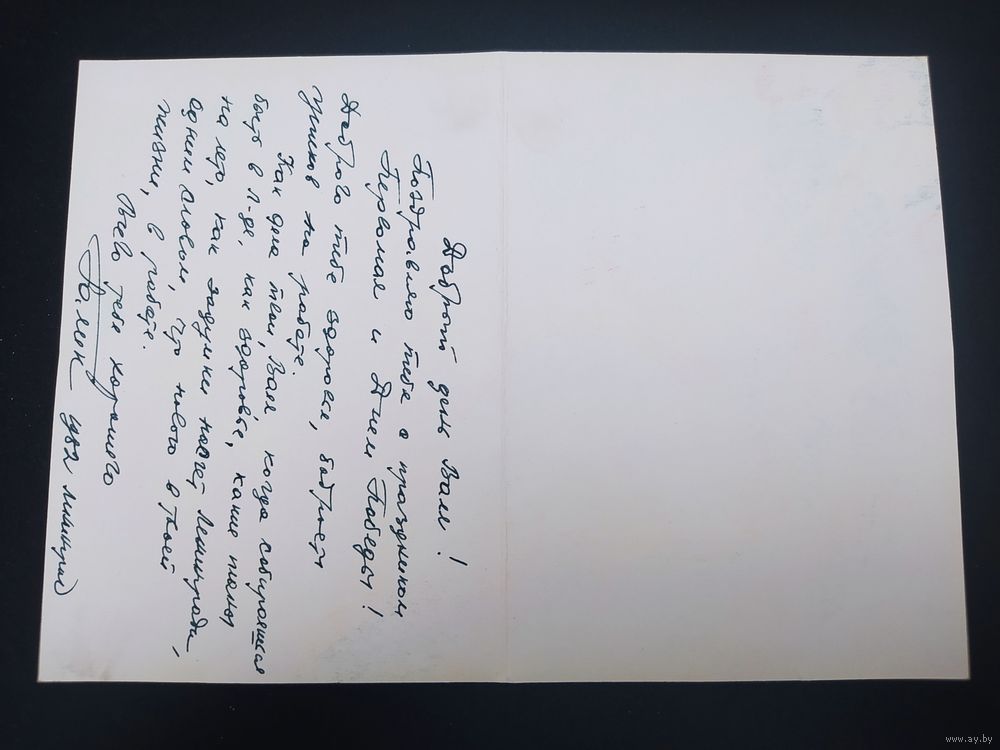 Добрый день Валя!
Поздравляю тебя с праздником
Первомая и Днем Победы!
Доброго тебе здоровья, бодрости
успехов на работе.
Как дела твои, Валя, когда собираешься
быть в Л-де, как здоровье, какие планы
на лето, как задумки насчет Ленинграда,
одним словом, что нового в твоей
жизни, в работе.
Всего тебе хорошего
1982 Ленинград
www.ay.by